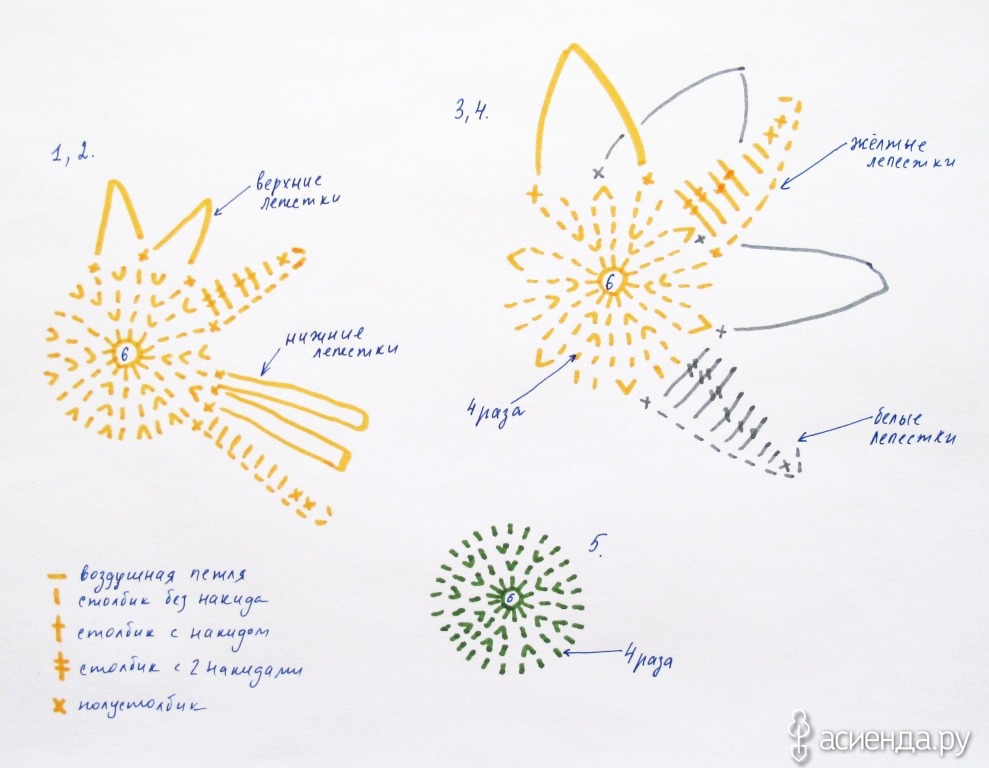 1, 2.
верхние
лепестки
6
нижние
лепестки
3, 4.
жёлтые
лепестки
6
4 раза
белые
лепестки
5.
6
4 раза
воздушная петля
столбик без накида
столбик с накидом
столбик с 2 накидами
полустолбик
асиенда.ру